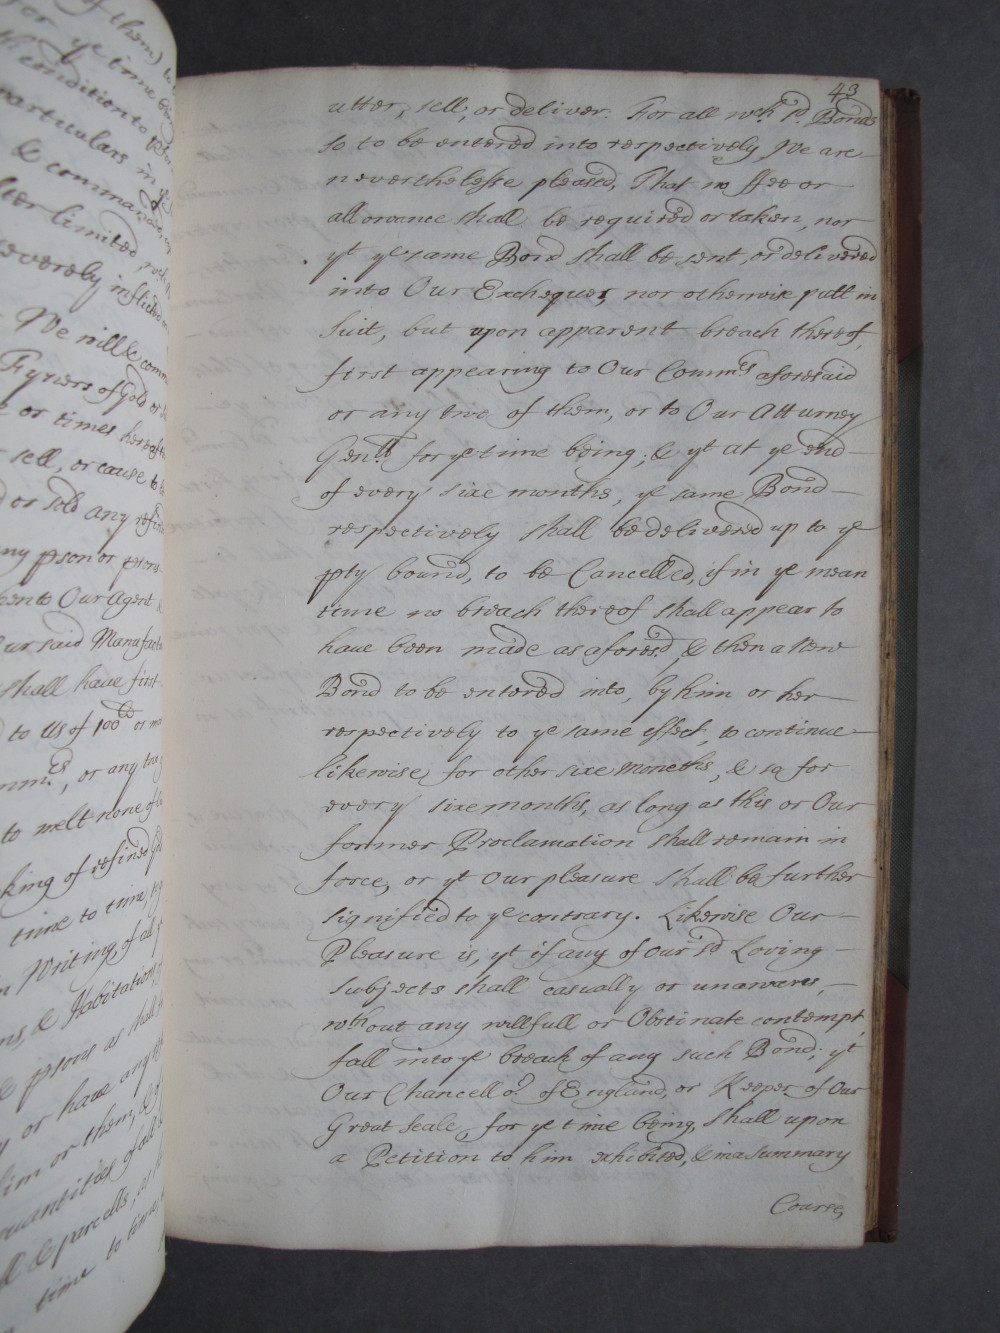 of them) to
for ye time being
th condition to ye
particulars in ye
& command
after limited, wch
severely inflicted on
We will & comm
Fyners of Gold or
e or times hereafter
sell, or cause to
d or sold any refin
any pson or psons
then to Our Agent
Our said Manufact
shall have first
d to Us of 100li or mo
omm.rs, or any two
to melt none of
king of refined
time to time,
n Writing, of all
ns, & Habitations
& psons as shall
y or have any
him or them, & of
quantities of all
ll & parcells, as
time to time
43
utter, sell, or deliver. For all wch sd Bonds
so to be entered into respectively, We are
neverthelesse pleased, That no ffee or
allowance shall be required or taken, nor
yt ye same Bond shall be sent, or delivered
into Our Exchequer, nor otherwise putt in
Suit, but upon apparent breach thereof,
first appearing to Our Comm.rs aforesaid
or any two of them, or to Our Atturney
Genll for ye time being; & yt at ye end
of every sixe months, ye same Bond
respectively shall be delivered up to ye
pty bound, to be Cancelled, if in ye mean
time no breach thereof shall appear to
have been made as aforesd, & then a New
Bond to be entered into, by him or her
respectively to ye same effect, to continue
likewise, for other sixe Moneths, & so for
every sixe months, as long as this or Our
former Proclamation shall remain in
force, or yt Our pleasure shall be further
signified to ye contrary. Likewise Our
Pleasure is, yt if any of Our sd Loving
Subjects shall casually or unawares,
wthout any willfull or Obstinate contempt,
fall into ye breach of any such Bond; yt
Our Chancellor. of England, or Keeper of Our
Great Seale, for ye time being, shall upon
a Petition to him exhibited, & in a summary
Course,